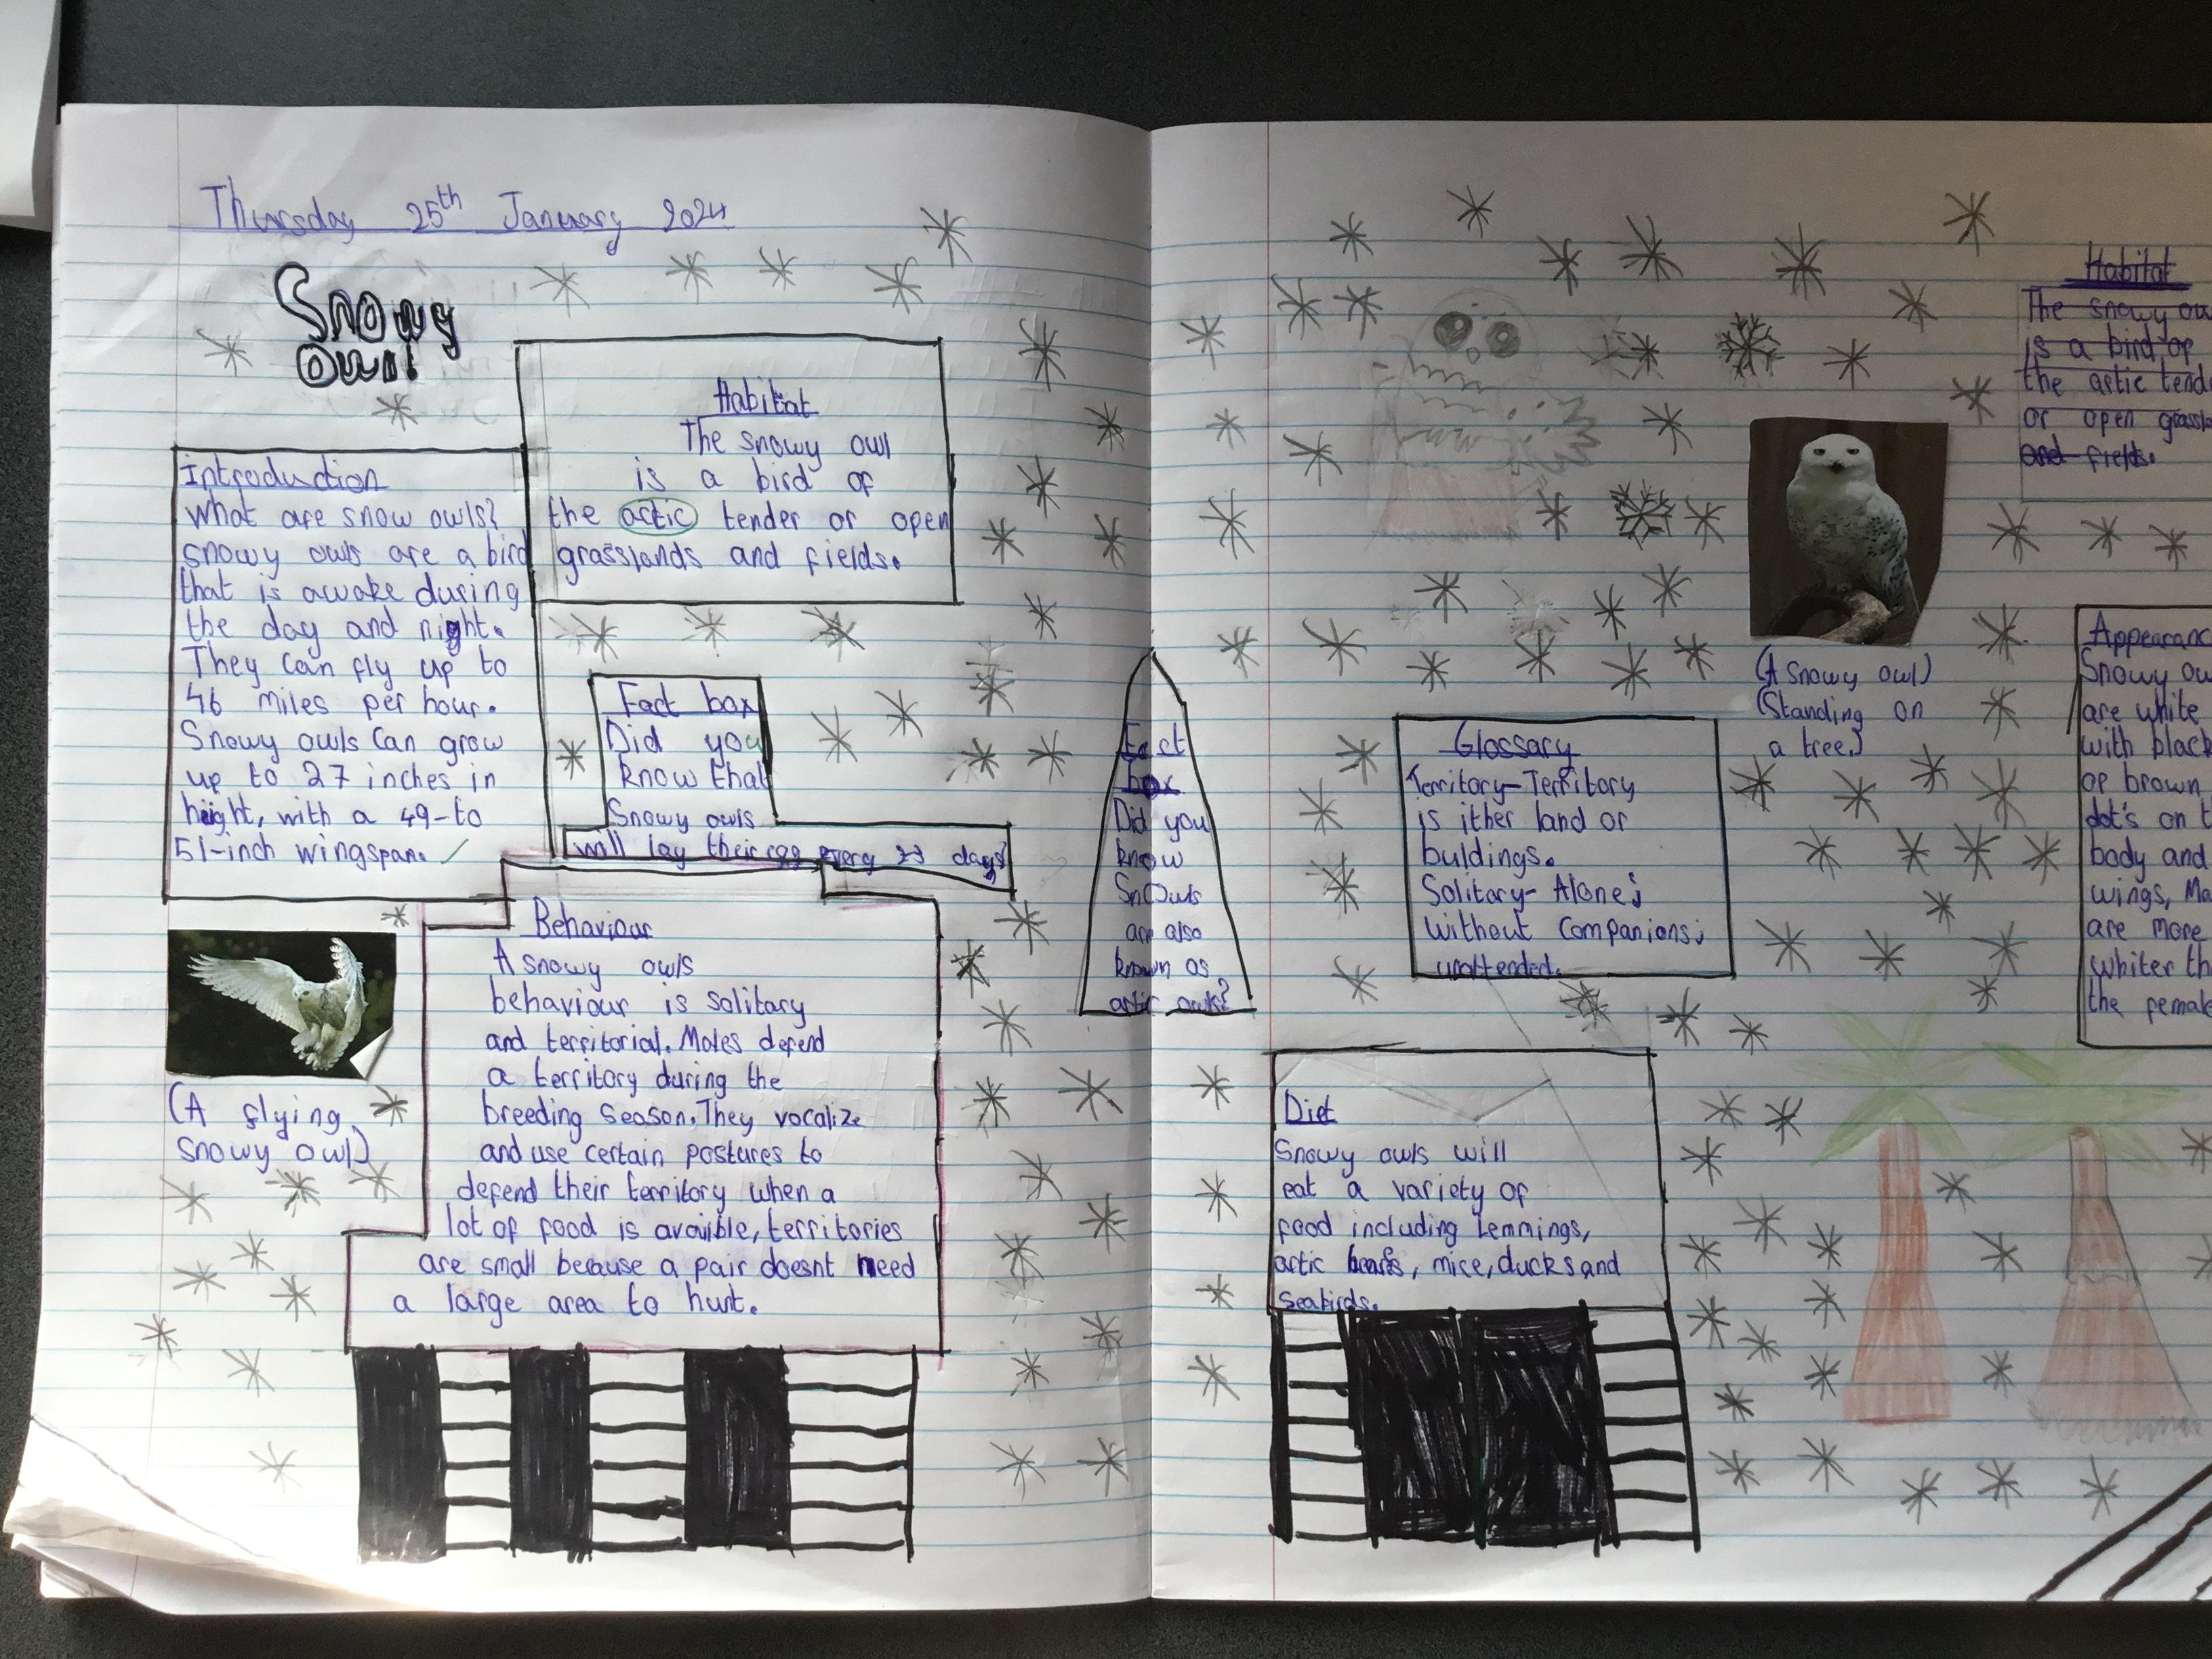 Thursday 25th January 2024
Snowy
Owl!
Introduction
What are snow owls?
snowy owls are a bird
that is awake during
the day and night.
They can fly up to
46 miles per hour.
Snowy owls can grow
up to 27 inches in
height, with a 49-to
51-inch wingspan.
(A flying
snowy owl)
Habitat
The snowy owl
is a bird of
the artic tender or open
grasslands and fields.
Fact box
Did you
know that
Snowy owls
will lay their egg every 23 days?
Behaviour
A snowy owls
behaviour is solitary
and territorial. Males defend
a territory during the
breeding season. They vocalize
and use certain postures to
defend their territory when a
lot of food is avaible, territories
are small because a pair doesnt need
a large area to hunt.
Fact
box
Did you
know
Sn Owls
are also
known as
artic owls?
Glossary
Territory- Territory
is ither land or
buldings.
Solitary- Alone;
without companions;
unattended.
Diet
Snowy owls will
eat a variety of
food including Lemmings,
artic, mice, ducks and
seabirds.
(A snowy owl)
(Standing on
a tree.)
Habitat
The snowy ow
is a bird of
the artic tend
or open grassl
and fields.
Appearanc
Snowy ow
are white
with black
or brown
dot's on t
body and
wings, Ma
are more
whiter th
the female